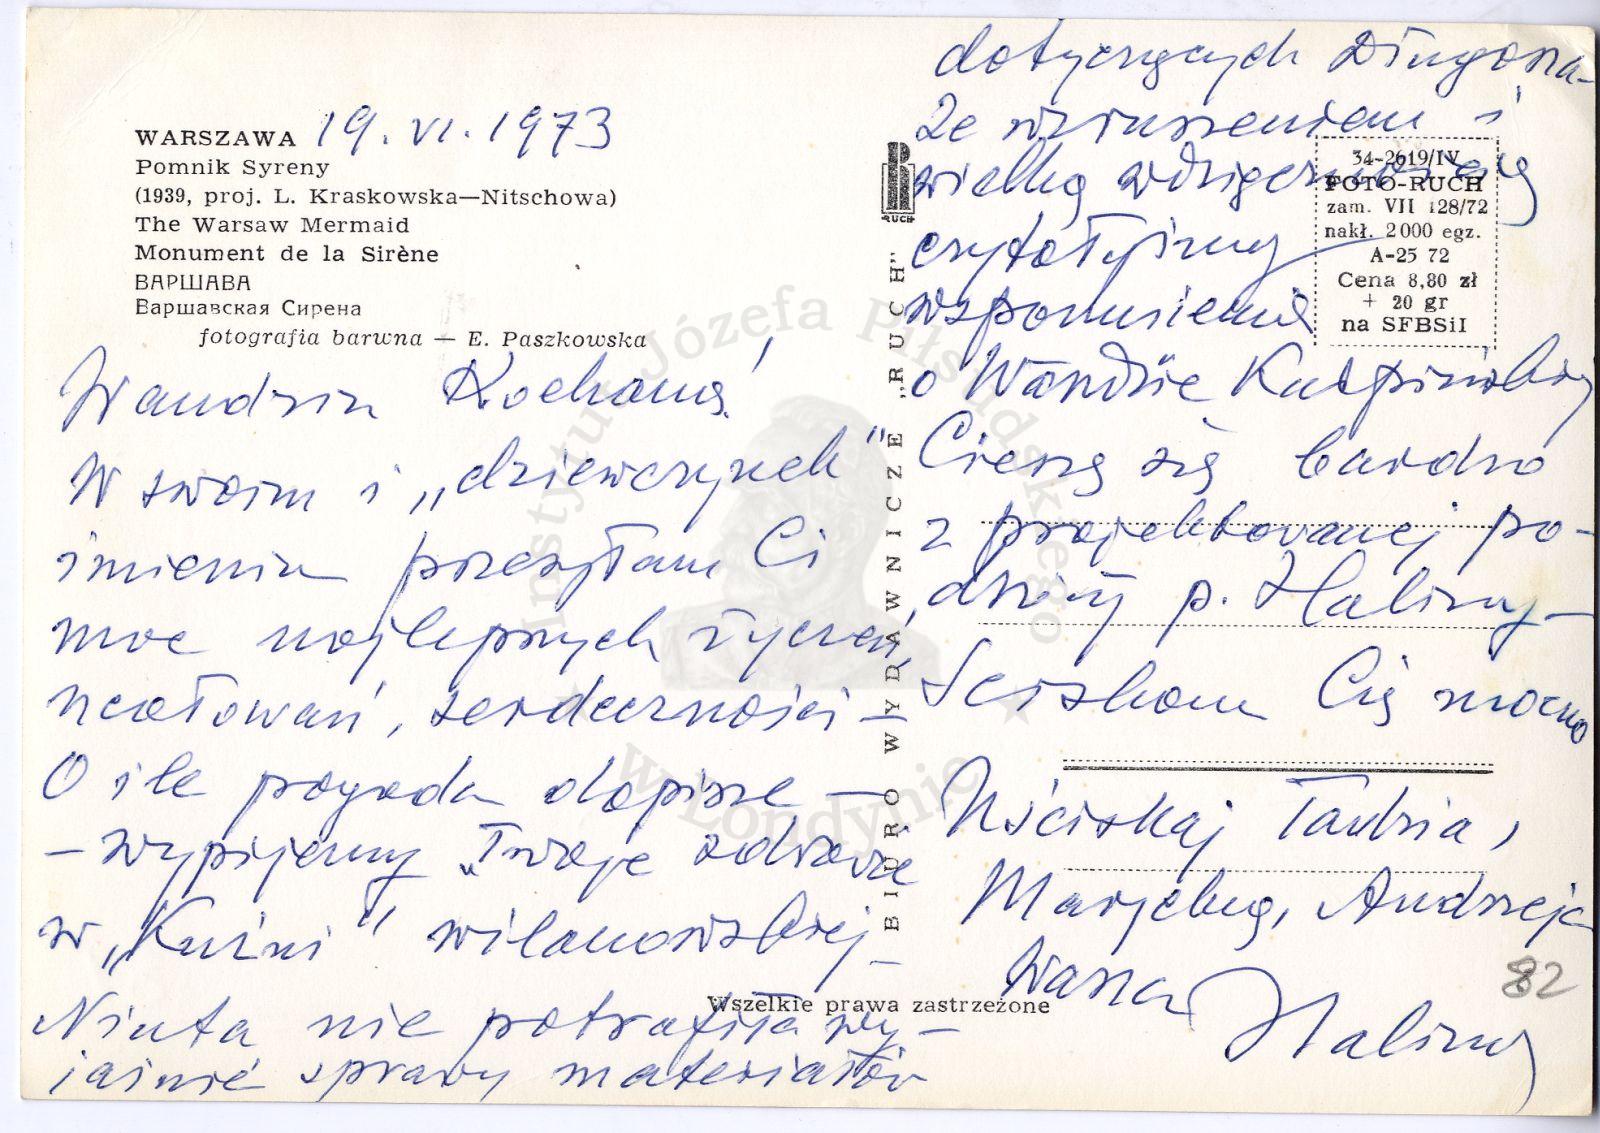 WARSZAWA 19. VI. 1973
Pomnik Syreny
(1939, proj. L. Kraskowska—Nitschowa)
The Warsaw Mermaid
Monument de la Sirène
ВАРШАВА
Варшавская Сирена
fotografia barwna — E. Paszkowska
Wandziu Kochana!
W swoim i „dziewczynek"
imieniu przesyłam Ci
moc najlepszych życzeń,
ucałowań, serdeczności —
O ile pogoda dopisze —
— wypijemy Twoje zdrowie
w „Kuźni" wilanowskiej —
Niuta nie potrafiła wy-
jaśnić sprawy materiałów
Wszelkie prawa zastrzeżone
BIURO WYDAWNICZE „RUCH"
RUCH
34-2619/IV
FOTO-RUCH
zam. VII 128/72
nakł. 2000 egz.
A-25 72
Cena 8,80 zł
+ 20 gr
na SFBSiI
dotyczących Długosza —
Ze wzruszeniem i
wielką wdzięcznością
czytałyśmy
wspomnienie
o Wandzie
Cieszę się bardzo
z projektowanej po-
dróży p. Haliny —
Ściskam Cię mocno
Uściskaj Tadzia,
Andrzeja
Wasza
Halina
82
Instytut Józefa Piłsudskiego
w Londynie